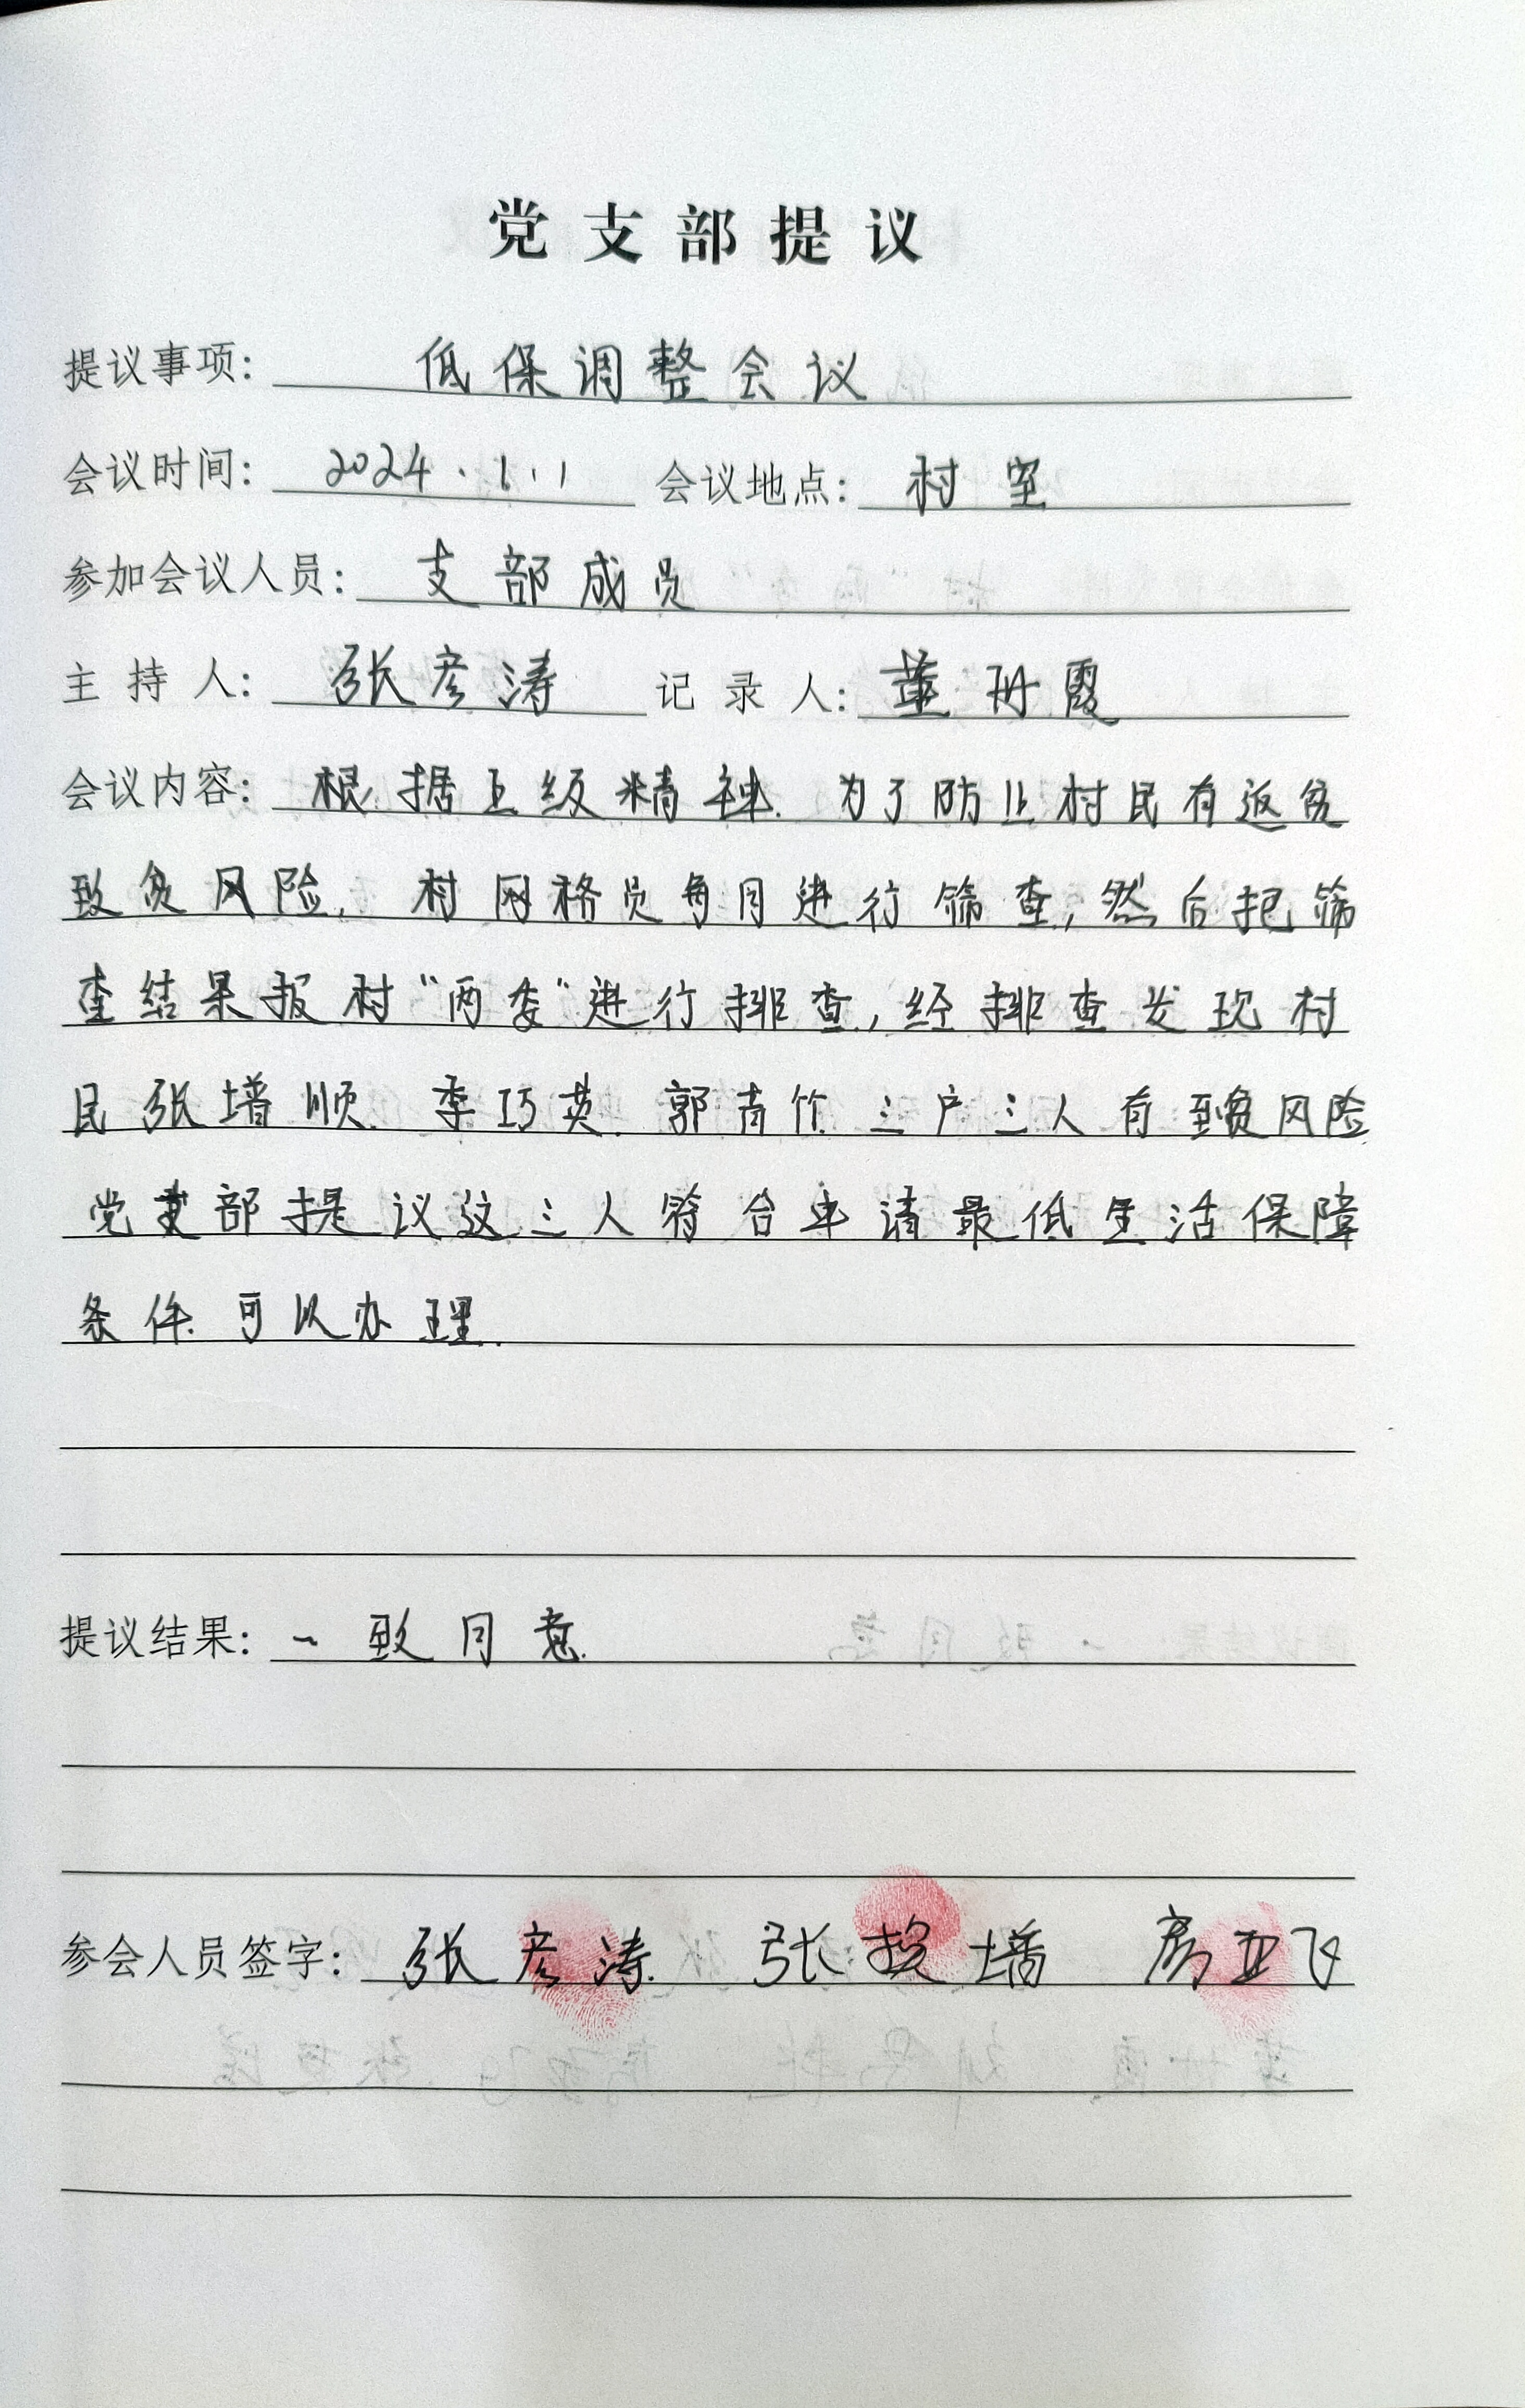 党支部提议
提议事项: 低保调整会议
会议时间: 2024.1.1 会议地点: 村室
参加会议人员: 支部成员
主持人: 张彦涛 记录人: 董珘霞
会议内容: 根据上级精神.为了防止村民有返贫
致贫风险,村网格员每月进行筛查,然后把筛
查结果报村“两委”进行排查,经排查发现村
民张增顺.李巧英.郭青竹.三户三人有致贫风险
党支部提议这三人符合申请最低生活保障
条件.可以办理.
提议结果: 一致同意.
参会人员签字: 张彦涛 张 增 房亚飞